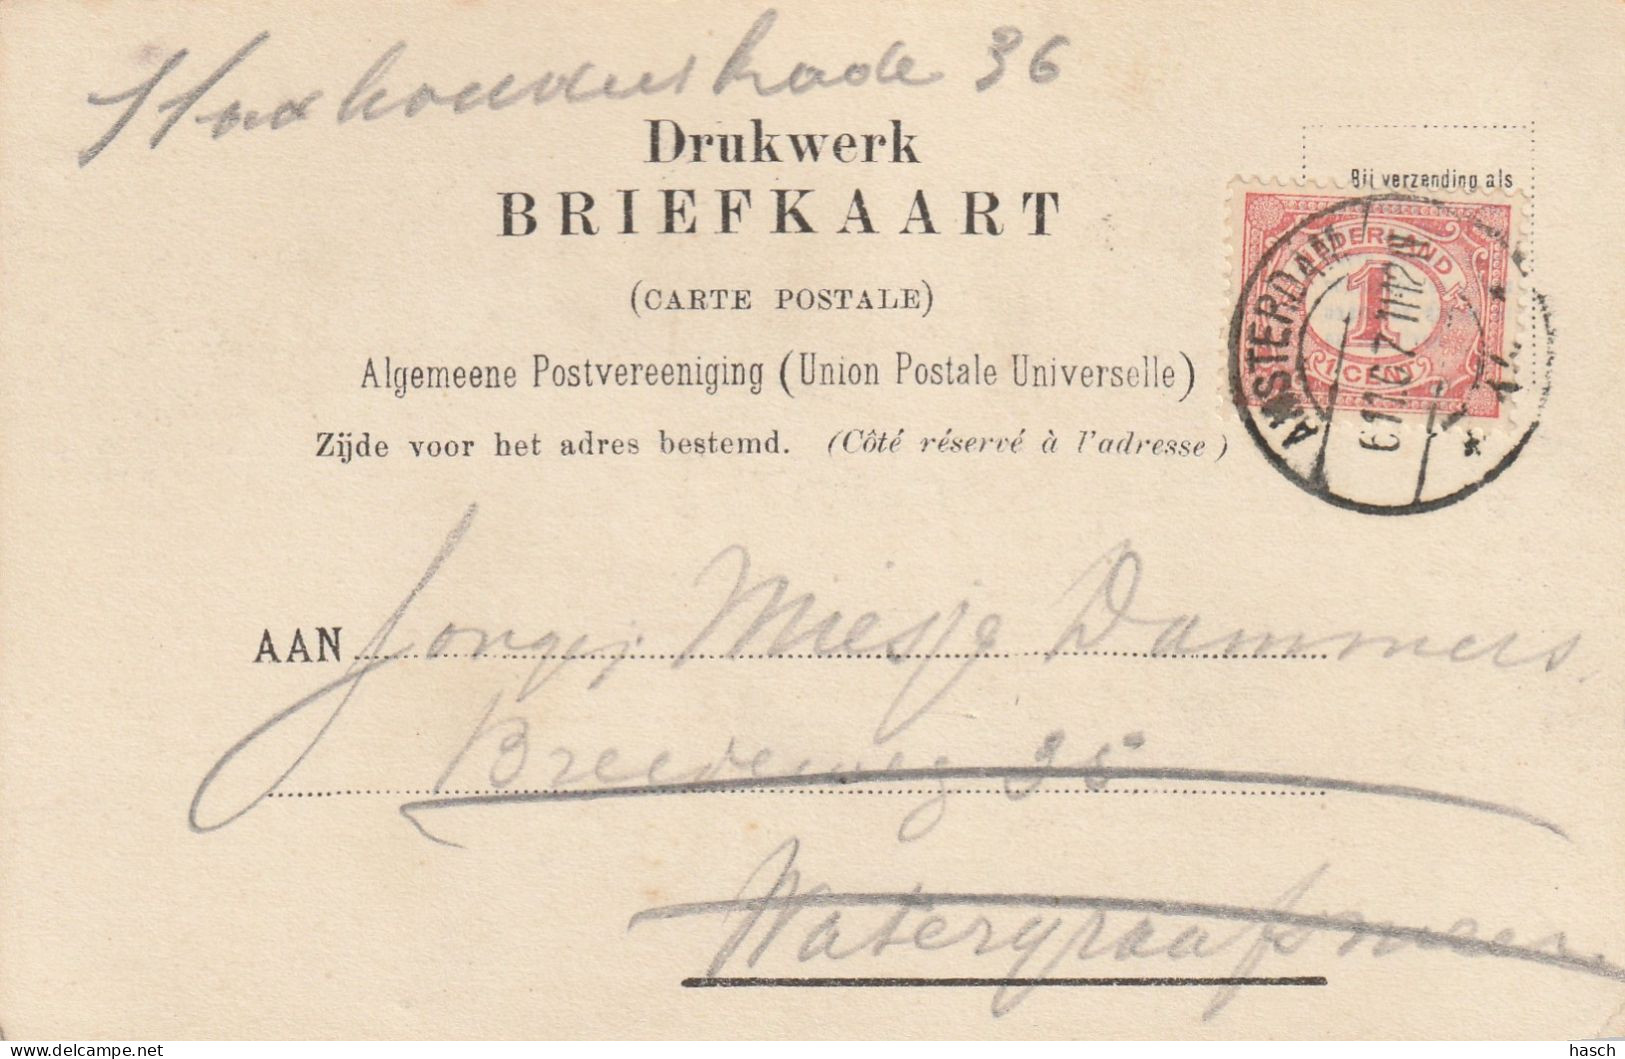 Stadhouderskade 36
Drukwerk
BRIEFKAART
(CARTE POSTALE)
Algemeene Postvereeniging (Union Postale Universelle)
Zijde voor het adres bestemd. (Côté réservé à l'adresse)
Bij verzending als
NEDERLAND
1
1 CENT
AMSTERDAM
AAN Jongej: Miesje Dammers.
Breedeweg 25
Watergraafsmeer.
delcampe.net
hasch